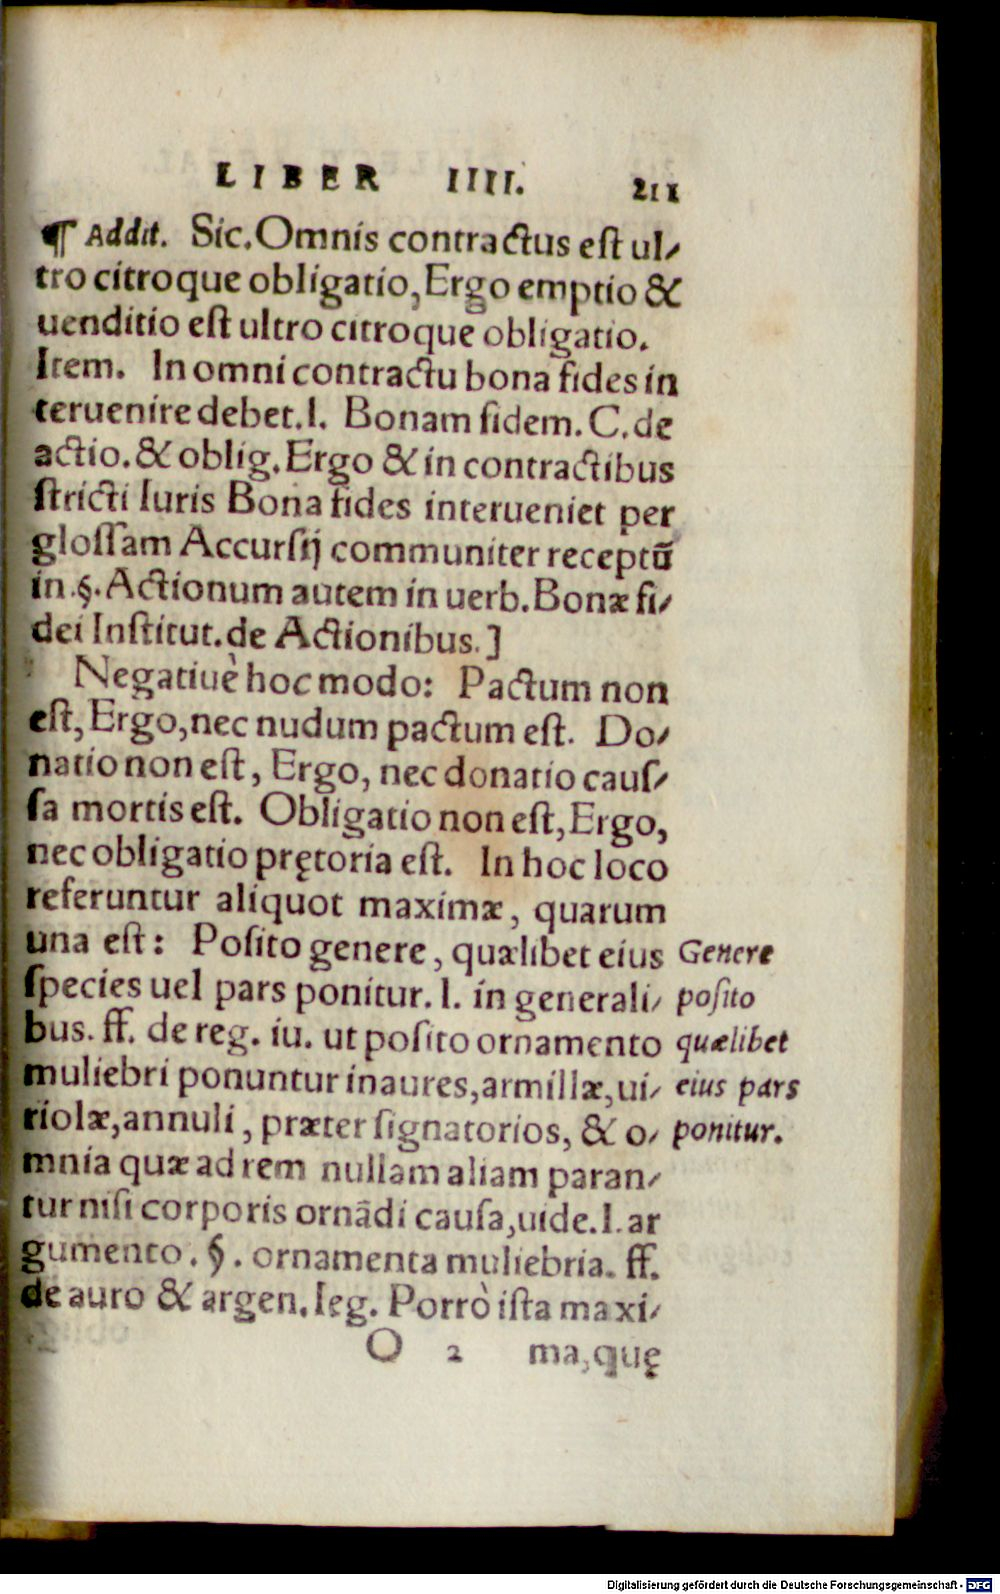 LIBER IIII. 211
¶ Addit. Sic. Omnis contractus eſt ul⸗
tro citroque obligatio, Ergo emptio &
uenditio eſt ultro citroque obligatio.
Item. In omni contractu bona fides in
teruenire debet. l. Bonam fidem. C. de
actio. & oblig. Ergo & in contractibus
ſtricti Iuris Bona fides interueniet per
gloſſam Accurſij communiter receptū
in .§. Actionum autem in uerb. Bonæ fi⸗
dei Inſtitut. de Actionibus.]
Negatiuè hoc modo: Pactum non
eſt, Ergo, nec nudum pactum eſt. Do⸗
natio non eſt, Ergo, nec donatio cauſ⸗
ſa mortis eſt. Obligatio non eſt, Ergo,
nec obligatio prętoria eſt. In hoc loco
referuntur aliquot maximæ, quarum
una eſt: Poſito genere, quælibet eius
ſpecies uel pars ponitur. l. in generali⸗
bus. ff. de reg. iu. ut poſito ornamento
muliebri ponuntur inaures, armillæ, ui⸗
riolæ, annuli, præter ſignatorios, & o⸗
mnia quæ ad rem nullam aliam paran⸗
tur niſi corporis ornādi cauſa, uide. l. ar
gumento. §. ornamenta muliebria. ff.
de auro & argen. leg. Porrò iſta maxi⸗
O 2 ma, quę
Genere
poſito
quælibet
eius pars
ponitur.
Digitalisierung gefördert durch die Deutsche Forschungsgemeinschaft - DFG